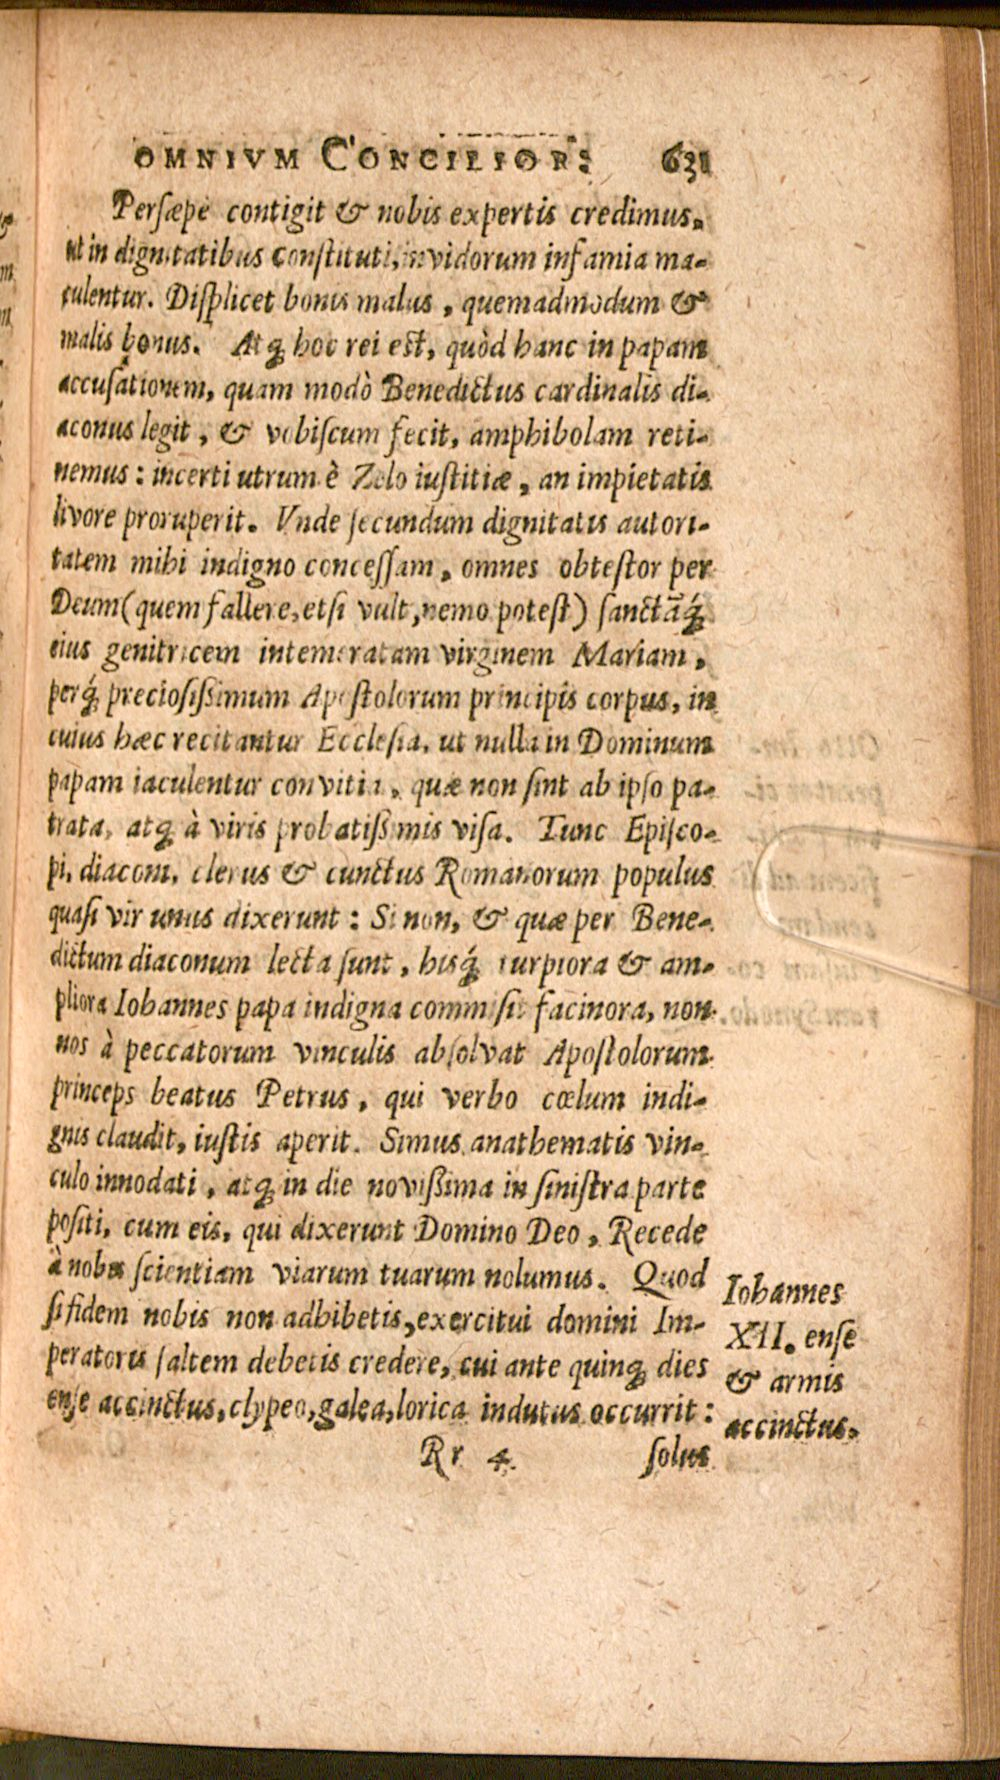 OMNIVM CONCILIOR: 631
Persæpe contigit & nobis expertis credimus,
ut in dignitatibus constituti, invidorum infamia ma-
culentur. Displicet bonus malus, quemadmodum &
malis bonus. Atq; hoc rei est, quòd hanc in papam
accusationem, quam modò Benedictus cardinalis di-
aconus legit, & vobiscum fecit, amphibolam reti-
nemus: incerti utrum è Zelo iustitiæ, an impietatis
livore proruperit. Vnde secundum dignitatis autori-
tatem mihi indigno concessam, omnes obtestor per
Deum (quem fallere, etsi vult, nemo potest) sanctāq́;
eius genitricem intemeratam virginem Mariam,
perq́; preciosißimum Apostolorum principis corpus, in
cuius hæc recitantur Ecclesia, ut nulla in Dominum
papam iaculentur convitia, quæ non sint ab ipso pa-
trata, atq; à viris probatißimis visa. Tunc Episco-
pi, diaconi, clerus & cunctus Romanorum populus
quasi vir unus dixerunt: Si non, & quæ per Bene-
dictum diaconum lecta sunt, hisq́; turpiora & am-
pliora Iohannes papa indigna commisit facinora, non
nos à peccatorum vinculis absolvat Apostolorum
princeps beatus Petrus, qui verbo cœlum indi-
gnis claudit, iustis aperit. Simus anathematis vin-
culo innodati, atq; in die novißima in sinistra parte
positi, cum eis, qui dixerunt Domino Deo, Recede
à nobis scientiam viarum tuarum nolumus. Quod
si fidem nobis non adhibetis, exercitui domini Im-
peratoris saltem debetis credere, cui ante quinq; dies
ense accinctus, clypeo, galea, lorica indutus occurrit:
Rr 4. solus
Iohannes
XII. ense
& armis
accinctus.